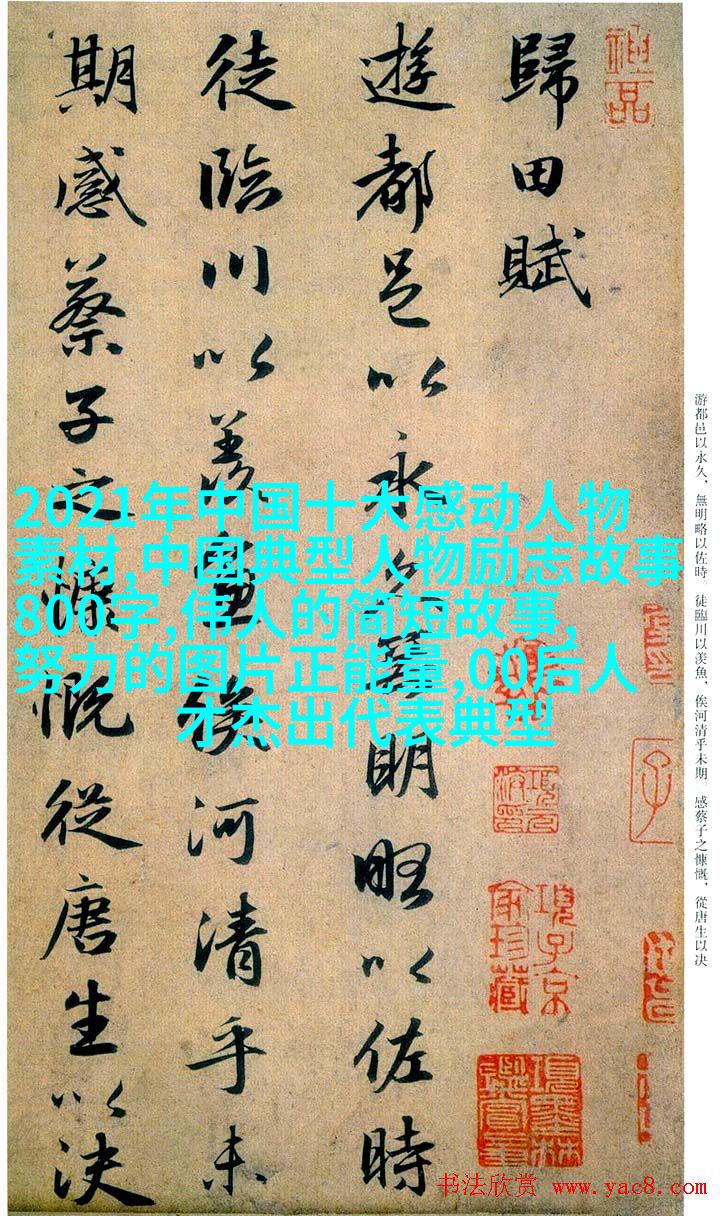 歸田賦
遊都邑以永久無明略以佐時
徒臨川以羨魚俟河清乎未
期感蔡子之慷慨從唐生以決
2021年中国十大感动人物
素材,中国典型人物励志故事
800字,伟人的简短故事,
努力的图片正能量,00后人
才杰出代表典型
神品
項子京
家珍藏
項墨林
鑑賞章
游都邑以永久，無明略以佐時　徒臨川以羨魚，俟河清乎未期。感蔡子之慷慨，從唐生以决
书法欣赏 www.yac8.com